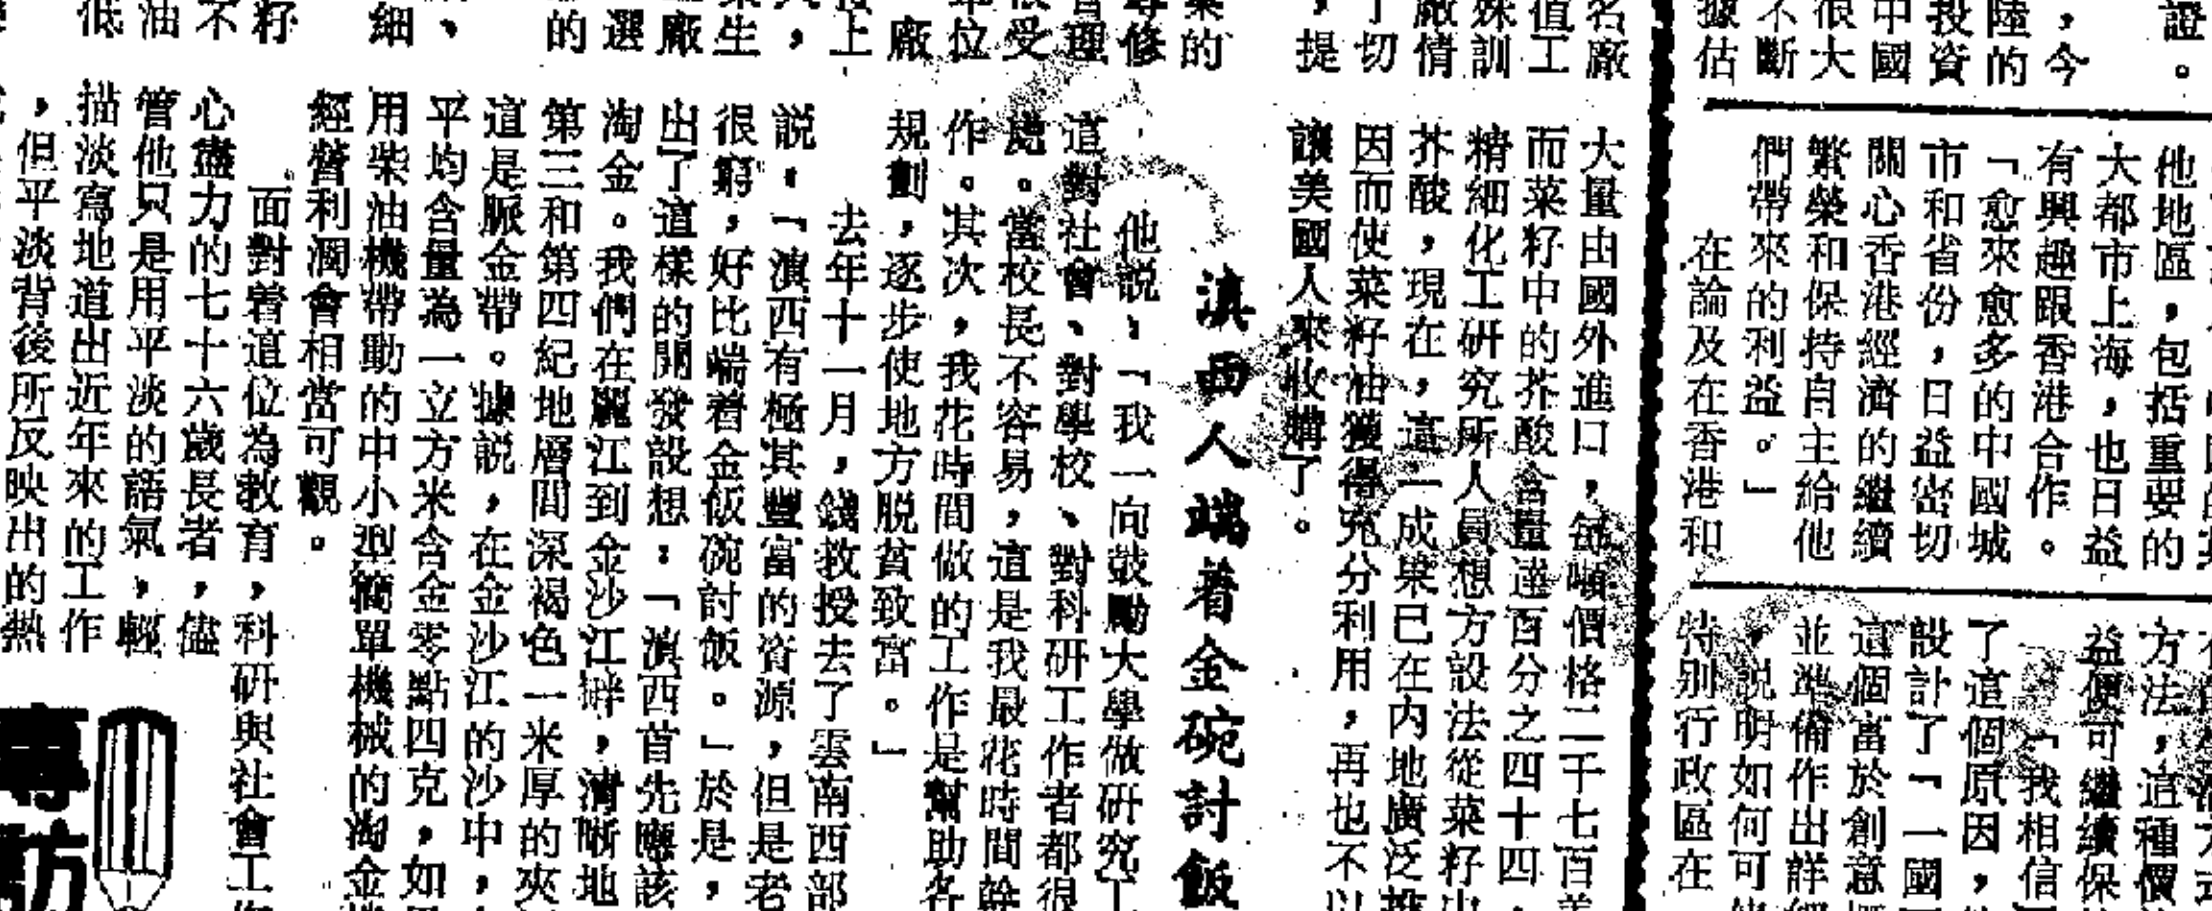 證。
，今
陸的
投資
中國
很大
不斷
據估
他地區，包括重要的
大都市上海，也日益
有興趣跟香港合作。
「愈來愈多的中國城
市和省份，日益密切
關心香港經濟的繼續
繁榮和保持自主給他
們帶來的利益。」
在論及在香港和
方法，這種價
益便可繼續保
「我相信
了這個原因，
設計了「一國
這個富於創意
並準備作出詳
，說明如何可
特別行政區在
名廠
值工
殊訓
廠情
了切
，提
大量由國外進口，每噸價格二千七百美
而菜籽中的芥酸含量達百分之四十四，
精細化工研究所人員想方設法從菜籽出
芥酸，現在，這一成果已在內地廣泛推
因而使菜籽油獲得充分利用，再也不以
讓美國人來收購了。
滇西人端着金碗討飯
業的
修
管理
很受
單位
廠
上
，
業生
廠
選
的
、
細
籽
不
油
低
他說：「我一向鼓勵大學做研究工
道對社會、對學校、對科研工作者都很
處。當校長不容易，這是我最花時間幹
作。其次，我花時間做的工作是幫助各
規劃，逐步使地方脱貧致富。」
去年十一月，錢教授去了雲南西部
説：「滇西有極其豐富的資源，但是老
很窮，好比端着金飯碗討飯。」於是，
出了這樣的開發設想：「滇西首先應該
淘金。我們在麗江到金沙江畔，清晰地
第三和第四紀地層間深褐色一米厚的夾
這是脈金帶。據説，在金沙江的沙中，
平均含量為一立方米含金零點四克，如
用柴油機帶動的中小型簡單機械的淘金
經營利潤會相當可觀。
面對着這位為教育，科研與社會工
心盡力的七十六歲長者，儘
管他只是用平淡的語氣，輕
描淡寫地道出近年來的工作
，但平淡背後所反映出的熱
專訪